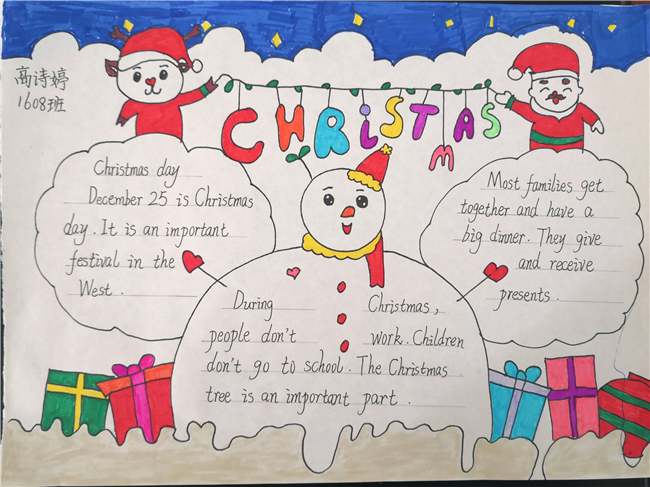 高诗婷
1608班
CHRISTMAS
Christmas day
December 25 is Christmas
day. It is an important
festival in the
West.
Most families get
together and have a
big dinner. They give
and receive
presents.
During Christmas,
people don't work. Children
don't go to school. The Christmas
tree is an important part.